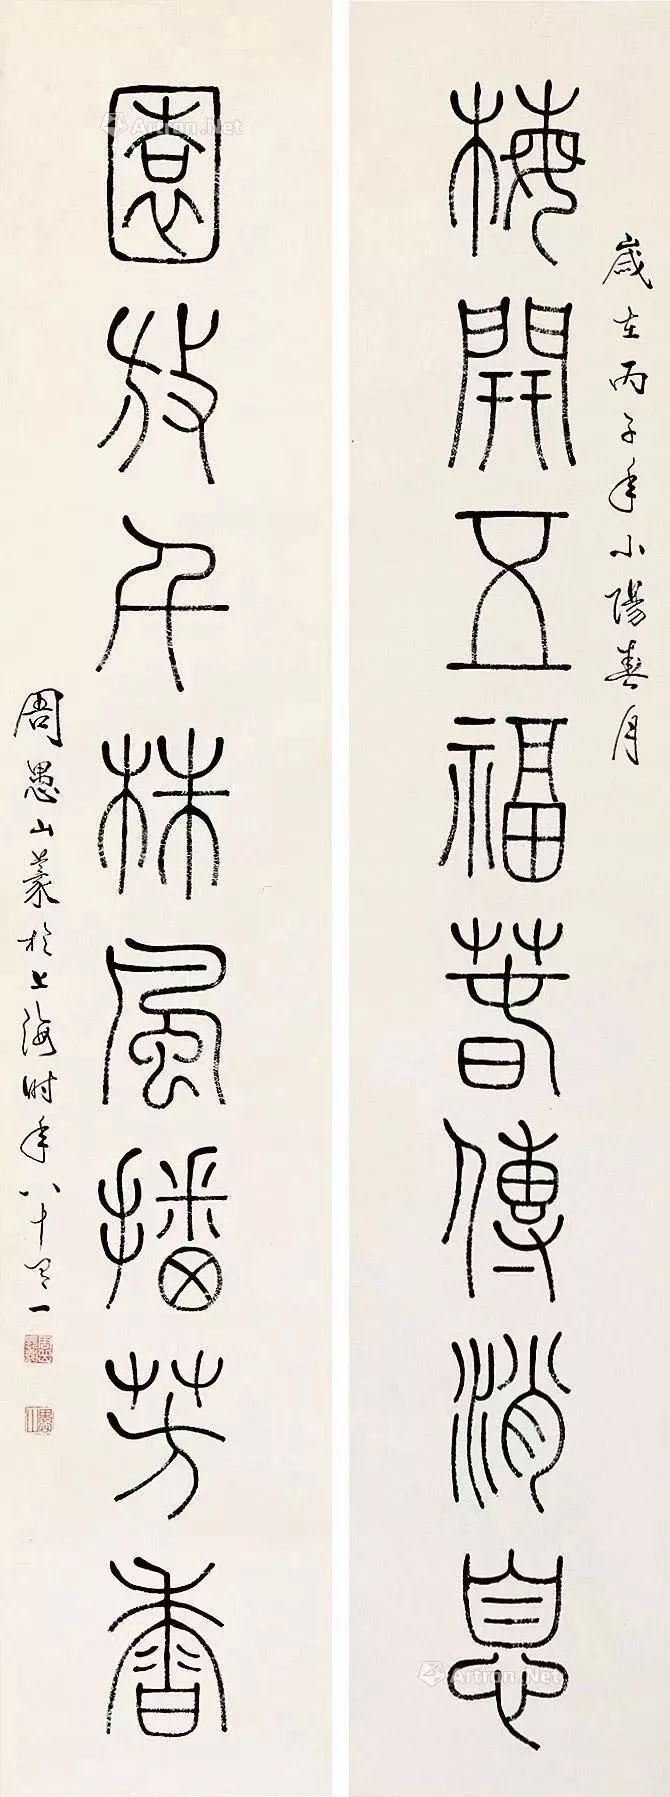 歲在丙子年小陽春月
梅開五福春傳消息
園放千株風播芳香
周愚山篆於上海时年八十有一
Artron.Net
Artron.Net